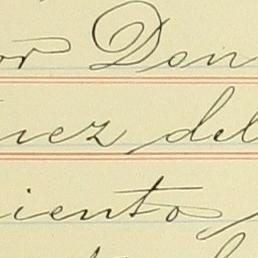 or Don
uez del
iento